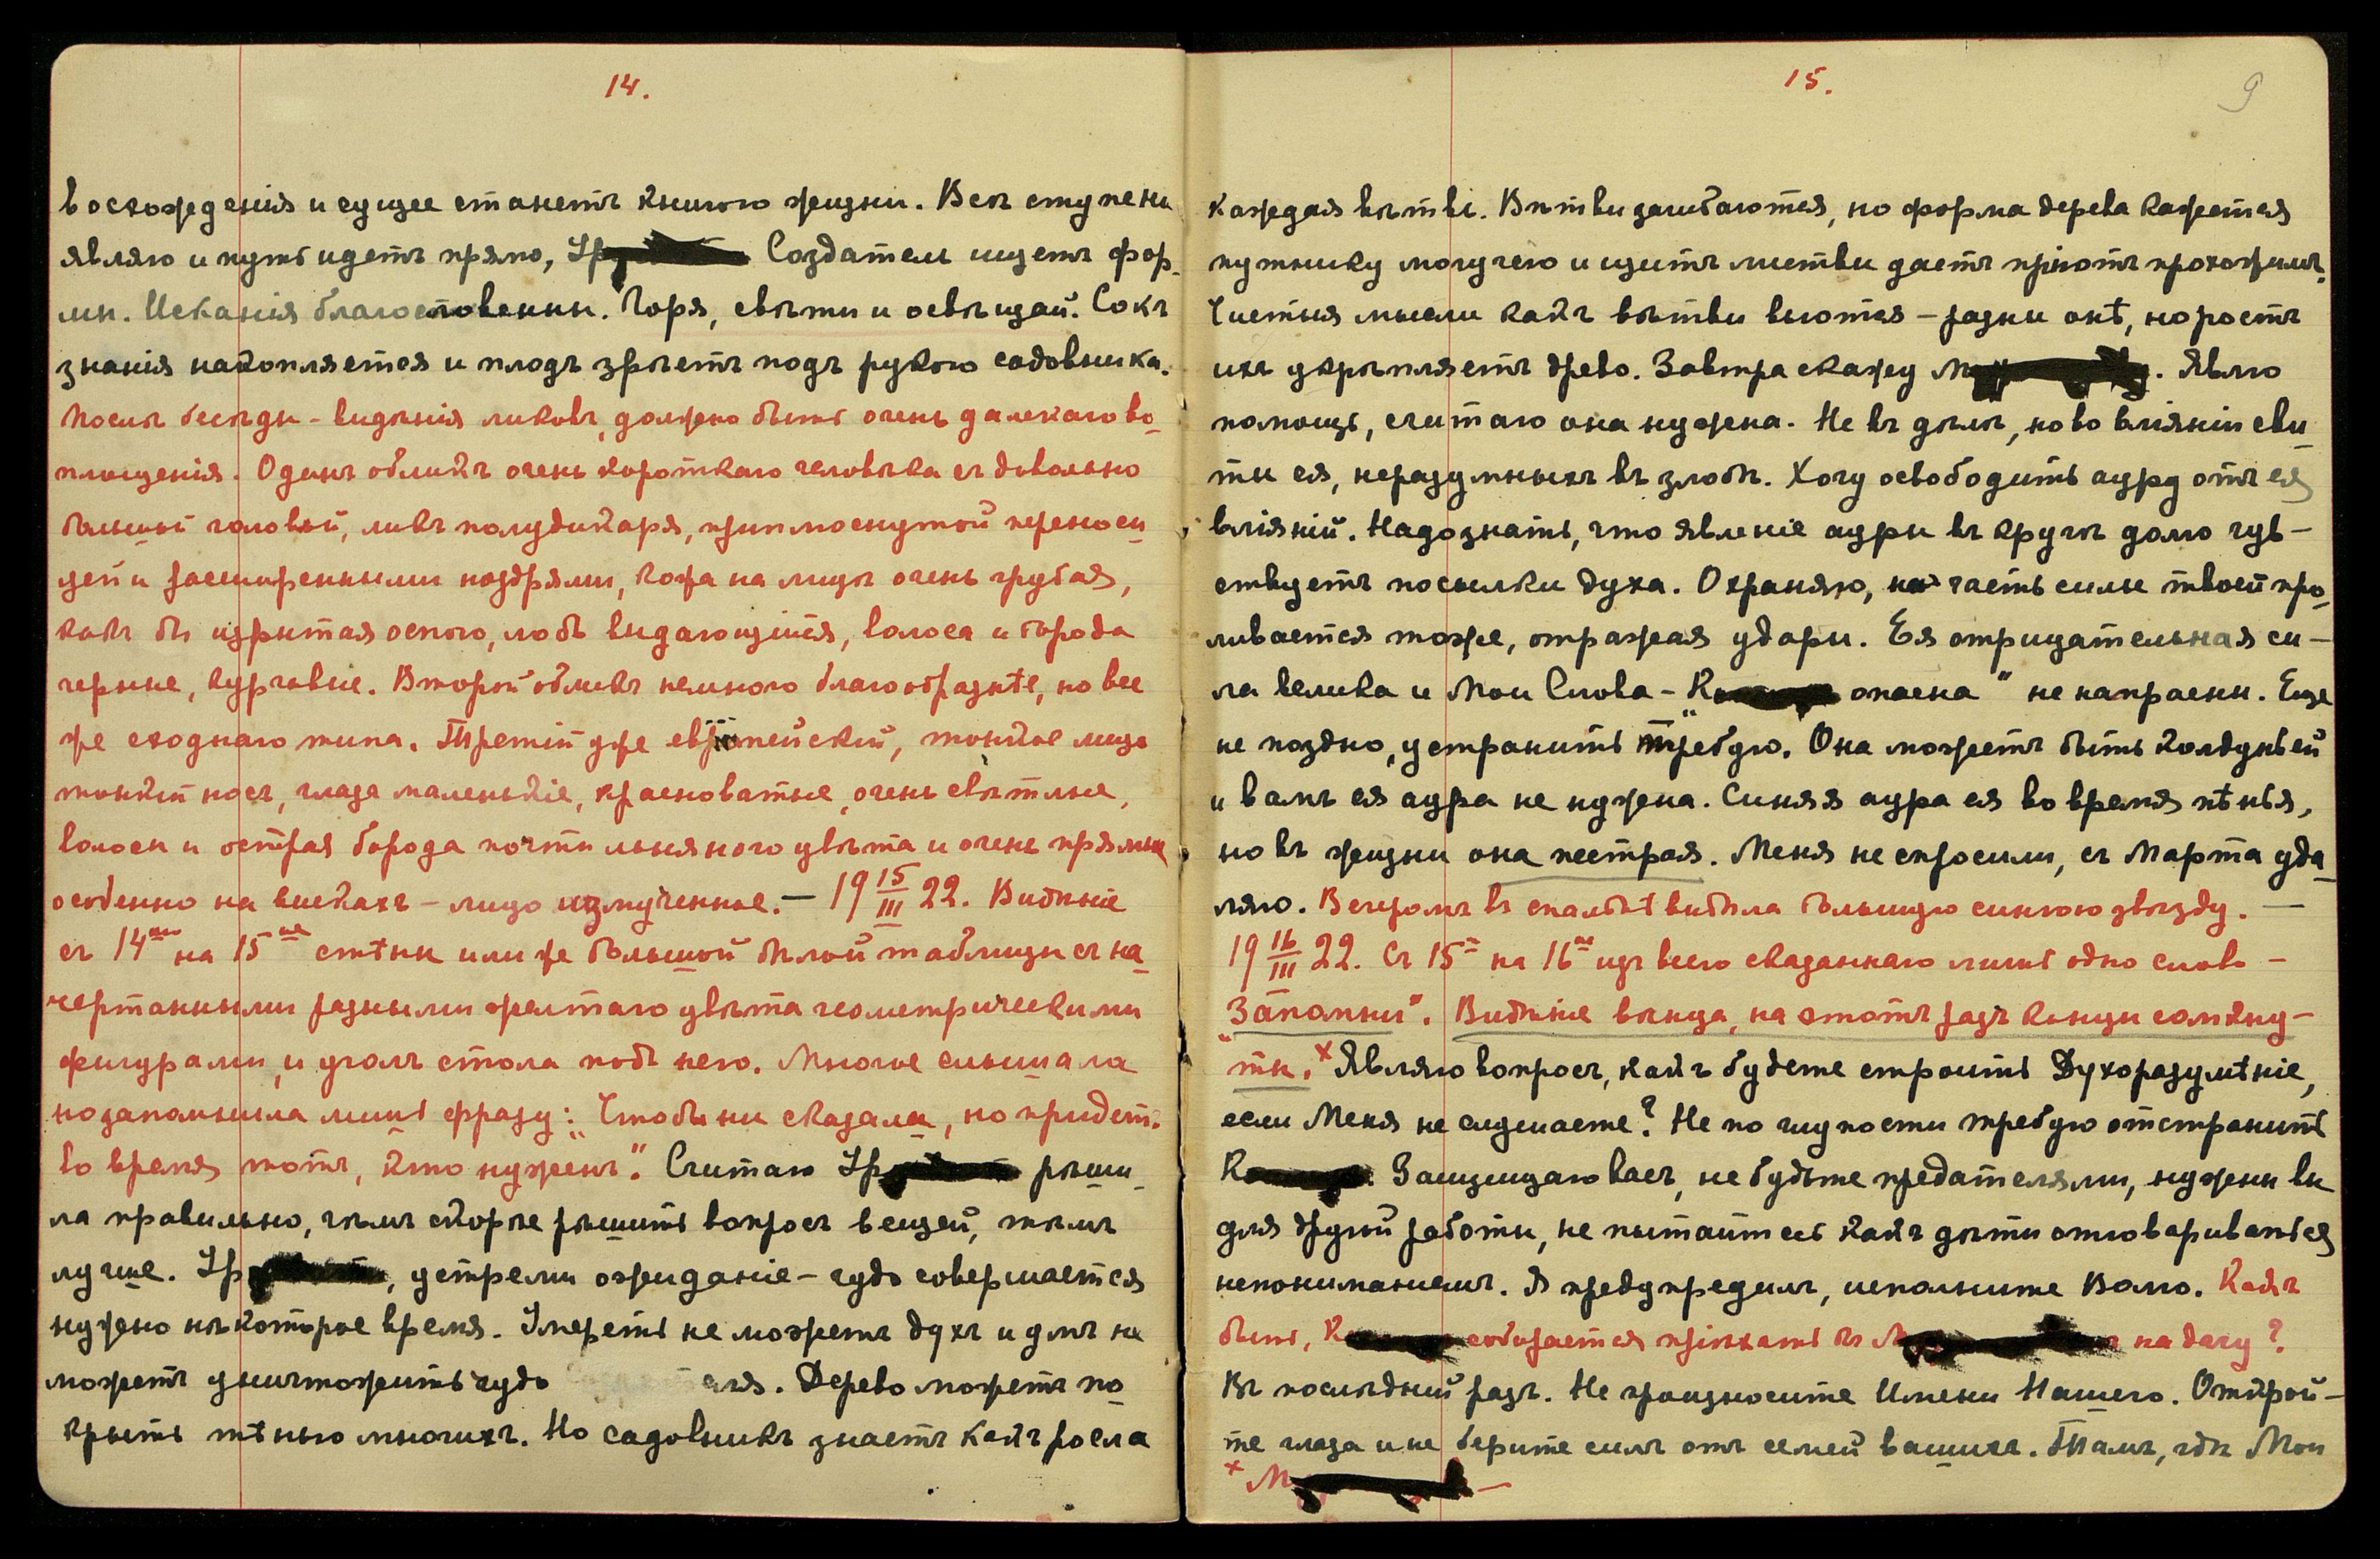 14.
восхожденія и сущее станетъ книгою жизни. Всѣ ступени
являю и путь идетъ прямо, Создатель ищетъ фор-
мы. Исканія благословенны. Горя, свѣти и освѣщай. Сокъ
знанія накопляется и плодъ зрѣетъ подъ рукою садовника.
Послѣ бесѣды - видѣнія ликовъ, должно быть очень далекаго во-
площенія. Одинъ обликъ очень короткаго человѣка съ довольно
большой головой, ликъ полудикаря, приплюснутой переноси-
цей и расширенными ноздрями, кожа на лицѣ очень грубая,
какъ бы изрытая оспою, лобъ выдающійся, волоса и борода
черные, курчавые. Второй обликъ немного благообразнѣе, но все
же сходнаго типа. Третій уже европейскій, тонкое лицо
тонкій носъ, глаза маленькіе, красноватые, очень свѣтлые,
волосы и острая борода почти льняного цвѣта и очень прямые
особенно на вискахъ - лицо измученное. — 19 15/III 22. Видѣніе
съ 14го на 15ое стѣны или же большой бѣлой таблицы съ на-
чертанными разными желтаго цвѣта геометрическими
фигурами, и уголъ стола подъ него. Многое слышала
но запомнила лишь фразу: „Чтобы ни сказали, но придетъ
во время тотъ, кто нуженъ“. Считаю рѣши-
ла правильно, чѣмъ скорѣе рѣшить вопросъ вещей, тѣмъ
лучше. , устреми ожиданіе - чудо совершается
нужно нѣкоторое время. Умереть не можетъ духъ и умъ не
можетъ уничтожить чудо . Дерево можетъ по-
крыть тѣнью многихъ. Но садовникъ знаетъ какъ росла
15.
9
каждая вѣтвь. Вѣтви загибаются, но форма дерева кажется
путнику могучею и щитъ листвы даетъ пріютъ прохожимъ.
Чистыя мысли какъ вѣтви вьются - разны онѣ, но ростъ
ихъ укрѣпляетъ древо. Завтра скажу . Явлю
помощь, считаю она нужна. Не въ дѣлѣ, но во вліяніи сви-
ты ея, неразумныхъ въ злобѣ. Хочу освободить ауру отъ ея
вліяній. Надо знать, что явленіе ауры въ кругѣ дома чув-
ствуетъ посылки духа. Охраняю, но часть силы твоей про-
ливается тоже, отражая удары. Ея отрицательная си-
ла велика и Мои Слова - „ опасна“ не напрасны. Еще
не поздно, устранить требую. Она можетъ быть колдуньей
и вамъ ея аура не нужна. Синяя аура ея во время пѣнья,
но въ жизни она пестрая. Меня не спросили, съ Марта уда-
ляю. Вечеромъ въ спальнѣ видѣла большую синюю звѣзду. —
19 16/III 22. Съ 15го на 16ое изъ всего сказаннаго лишь одно слово -
„Запомни“. Видѣніе вѣнца, на этотъ разъ концы сомкну-
ты. х Являю вопросъ, какъ будете строить Духоразумѣніе,
если Меня не слушаете? Не по глупости требую отстранить
Защищаю васъ, не будьте предателями, нужны вы
для другой работы, не пытайтесь какъ дѣти отговариваться
непониманіемъ. Я предупредилъ, исполните Волю. Какъ
быть, собирается пріѣхать къ на дачу?
Въ послѣдній разъ. Не произносите Имени Нашего. Открой-
те глаза и не берите силъ отъ семей вашихъ. Тамъ, гдѣ Мои
х М —